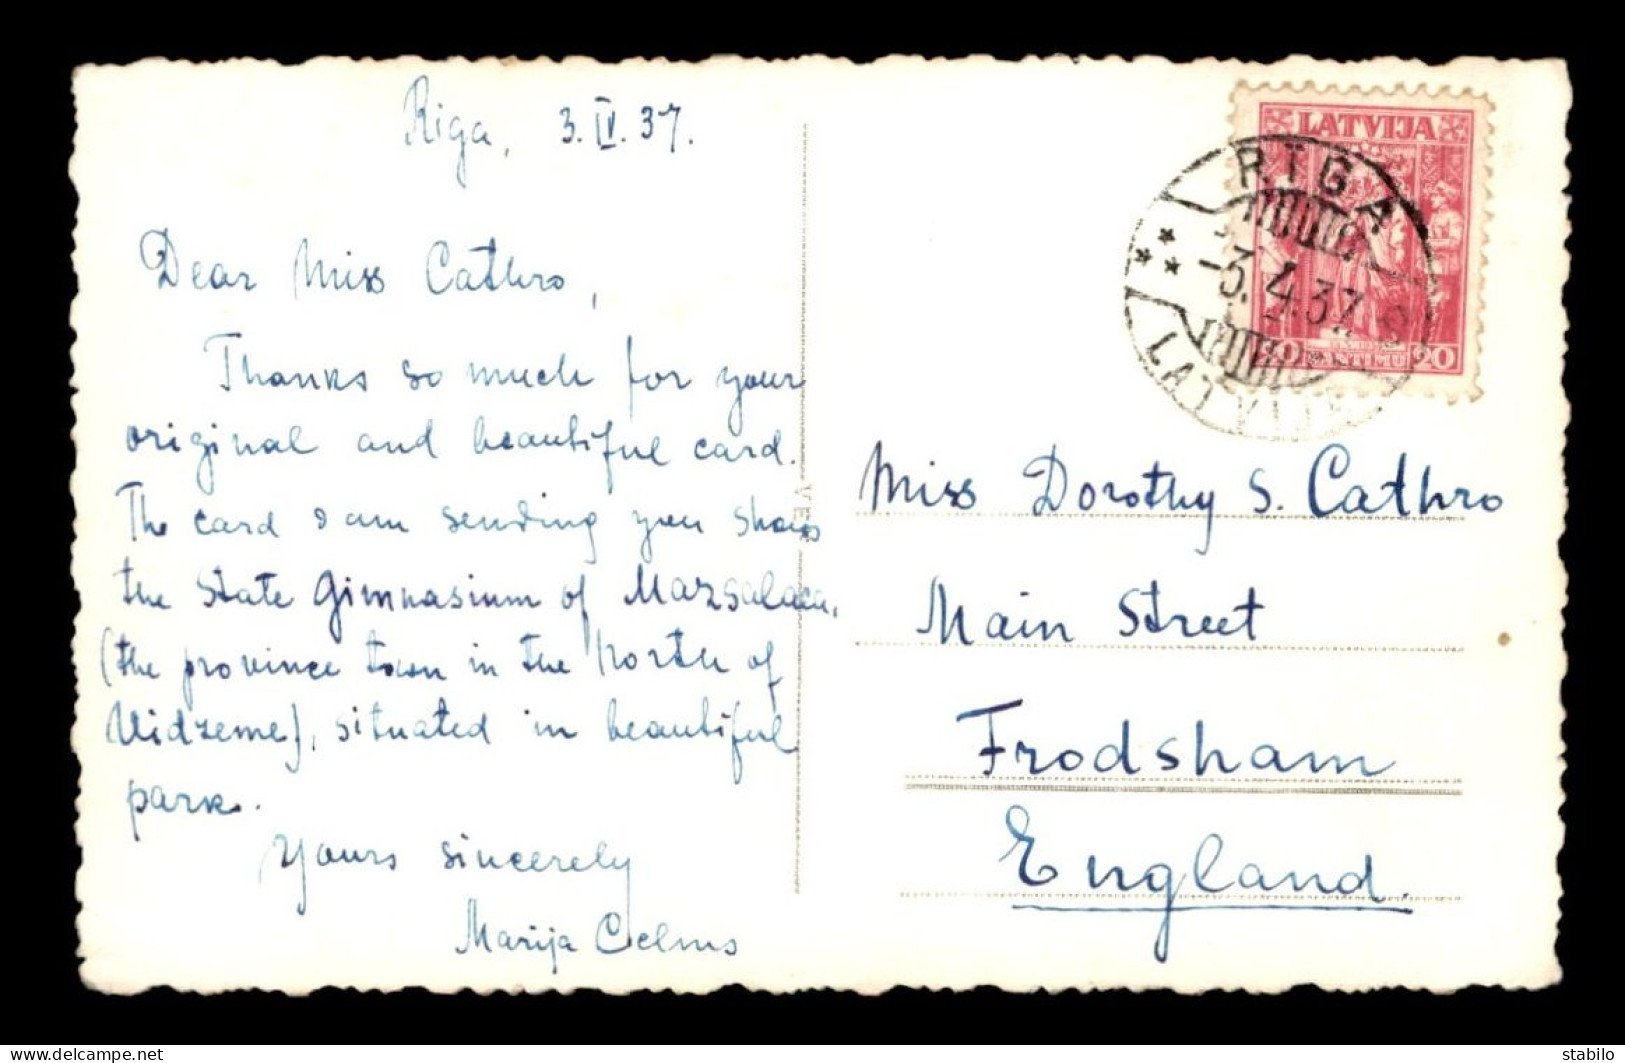 Riga, 3.IV.37.
Dear Miss Cathro,
Thanks so much for your
original and beautiful card.
The card I am sending you shows
the State Gimnasium of Mazsalaca,
(the province town in the North of
Vidzeme), situated in beautiful
park.
Yours sincerely
Marija Celms
LATVIJA
RIGA
-3.4.37.
LATVIJA
20 SANTIMU 20
Miss Dorothy S. Cathro
Main Street
Frodsham
England.
delcampe.net
stabilo